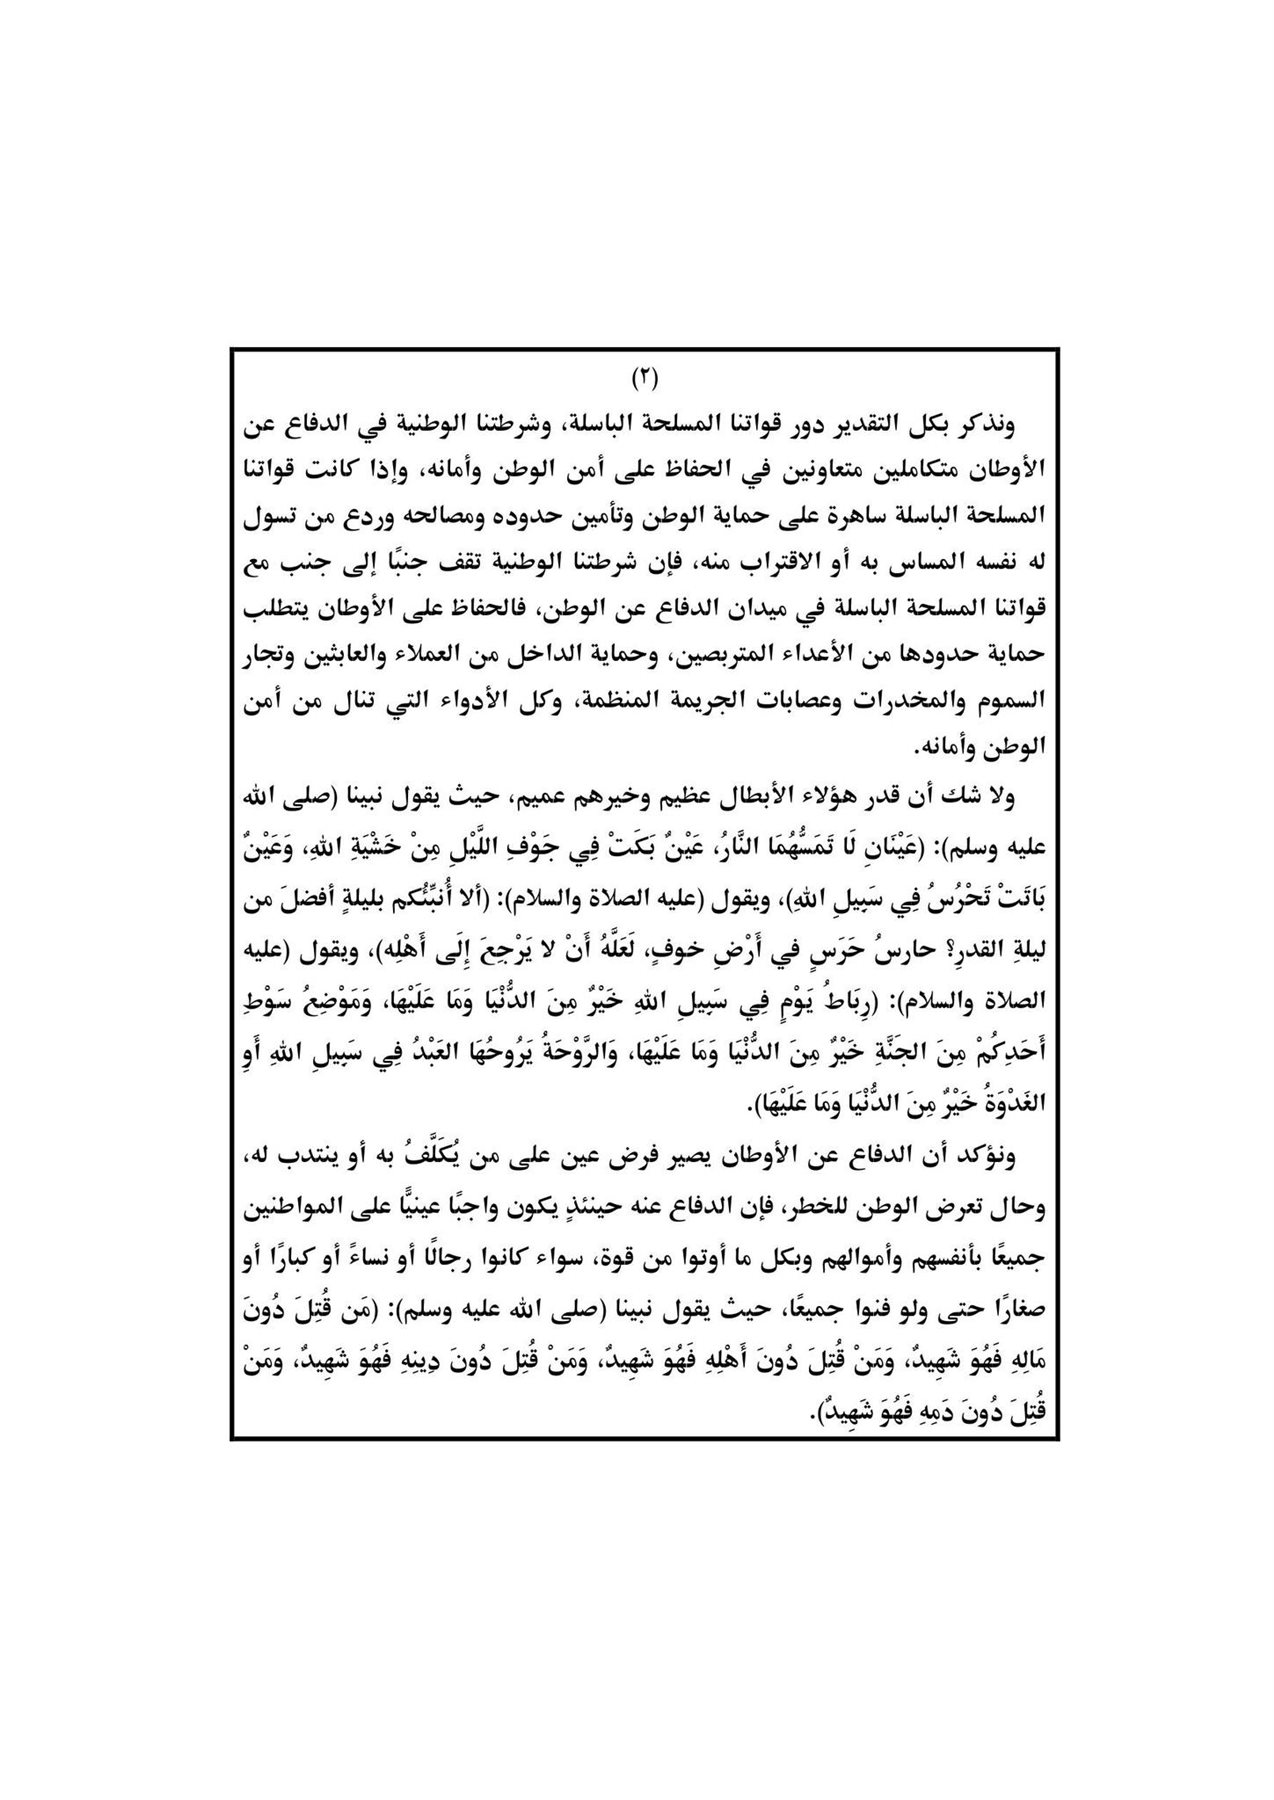 (٢)
ونذكر بكل التقدير دور قواتنا المسلحة الباسلة، وشرطتنا الوطنية في الدفاع عن
الأوطان متكاملين متعاونين في الحفاظ على أمن الوطن وأمانه، وإذا كانت قواتنا
المسلحة الباسلة ساهرة على حماية الوطن وتأمين حدوده ومصالحه وردع من تسول
له نفسه المساس به أو الاقتراب منه، فإن شرطتنا الوطنية تقف جنبًا إلى جنب مع
قواتنا المسلحة الباسلة في ميدان الدفاع عن الوطن، فالحفاظ على الأوطان يتطلب
حماية حدودها من الأعداء المتربصين، وحماية الداخل من العملاء والعابثين وتجار
السموم والمخدرات وعصابات الجريمة المنظمة، وكل الأدواء التي تنال من أمن
الوطن وأمانه.
ولا شك أن قدر هؤلاء الأبطال عظيم وخيرهم عميم، حيث يقول نبينا (صلى الله
عليه وسلم): (عَيْنَانِ لَا تَمَسُّهُمَا النَّارُ، عَيْنٌ بَكَتْ فِي جَوْفِ اللَّيْلِ مِنْ خَشْيَةِ اللهِ، وَعَيْنٌ
بَاتَتْ تَحْرُسُ فِي سَبِيلِ اللهِ)، ويقول (عليه الصلاة والسلام): (ألا أُنبِّئُكم بليلةٍ أفضلَ من
ليلةِ القدرِ؟ حارسُ حَرَسٍ في أَرْضِ خوفٍ، لَعَلَّهُ أَنْ لا يَرْجِعَ إِلَى أَهْلِه)، ويقول (عليه
الصلاة والسلام): (رِبَاطُ يَوْمٍ فِي سَبِيلِ اللهِ خَيْرٌ مِنَ الدُّنْيَا وَمَا عَلَيْهَا، وَمَوْضِعُ سَوْطِ
أَحَدِكُمْ مِنَ الجَنَّةِ خَيْرٌ مِنَ الدُّنْيَا وَمَا عَلَيْهَا، وَالرَّوْحَةُ يَرُوحُهَا العَبْدُ فِي سَبِيلِ اللهِ أَوِ
الغَدْوَةُ خَيْرٌ مِنَ الدُّنْيَا وَمَا عَلَيْهَا).
ونؤكد أن الدفاع عن الأوطان يصير فرض عين على من يُكَلَّفُ به أو ينتدب له،
وحال تعرض الوطن للخطر، فإن الدفاع عنه حينئذٍ يكون واجبًا عينيًّا على المواطنين
جميعًا بأنفسهم وأموالهم وبكل ما أوتوا من قوة، سواء كانوا رجالًا أو نساءً أو كبارًا أو
صغارًا حتى ولو فنوا جميعًا، حيث يقول نبينا (صلى الله عليه وسلم): (مَن قُتِلَ دُونَ
مَالِهِ فَهُوَ شَهِيدٌ، وَمَنْ قُتِلَ دُونَ أَهْلِهِ فَهُوَ شَهِيدٌ، وَمَنْ قُتِلَ دُونَ دِينِهِ فَهُوَ شَهِيدٌ، وَمَنْ
قُتِلَ دُونَ دَمِهِ فَهُوَ شَهِيدٌ).